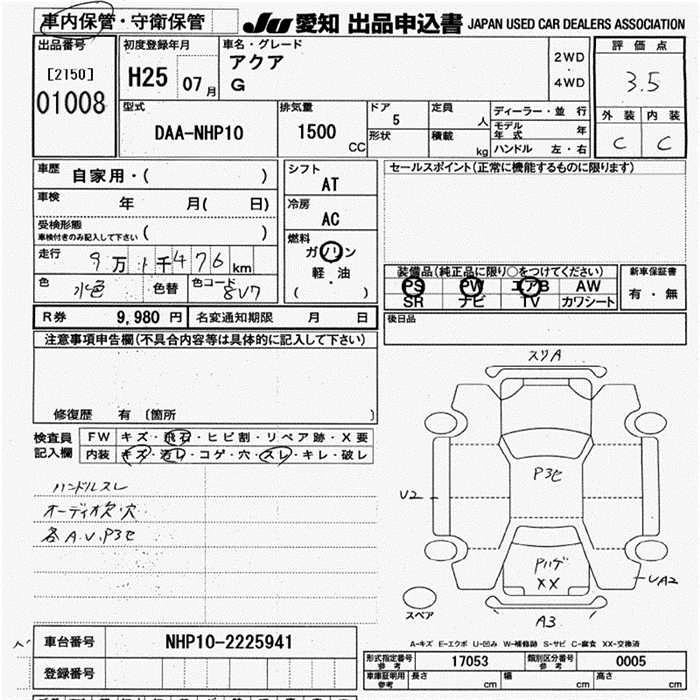 車内保管・守衛保管
JU 愛知 出品申込書 JAPAN USED CAR DEALERS ASSOCIATION
出品番号
[2150]
01008
初度登録年月
H25 07 月
車名・グレード
アクア
G
2WD
・
4WD
評価点
3.5
外装 内装
C C
型式
DAA-NHP10
排気量
1500 CC
ドア
5
形状
定員
人
積載
kg
ディーラー・並行
モデル年式 年
ハンドル 左・右
車歴 自家用・( )
車検 年 月( 日)
受検形態
車検付きのみ記入して下さい ( )
走行 9万1千476km
色 水色 色替 色コード 8V7
シフト
AT
冷房
AC
燃料
ガソリン
軽・油
( )
セールスポイント(正常に機能するものに限ります)
装備品(純正品に限り○をつけてください)
PS PW エアB AW
SR ナビ TV カワシート
新車保証書
有・無
後日品
R券 9,980 円 名変通知期限 月 日
注意事項申告欄(不具合内容等は具体的に記入して下さい)
修復歴 有 〔箇所 〕
検査員記入欄
FW キズ・飛石・ヒビ割・リペア跡・X要
内装 キズ・汚レ・コゲ・穴・スレ・キレ・破レ
ハンドルスレ
オーディオ欠・穴
各A.U.P3セ
スリA
P3セ
U2
Pハゲ
XX
UA2
A3
スペア
A-キズ E-エクボ U-凹み W-補修跡 S-サビ C-腐食 XX-交換済
車台番号 NHP10-2225941
登録番号
形式指定番号参考 17053 類別区分番号参考 0005
車庫証明用参考 長さ cm 幅 cm 高さ cm